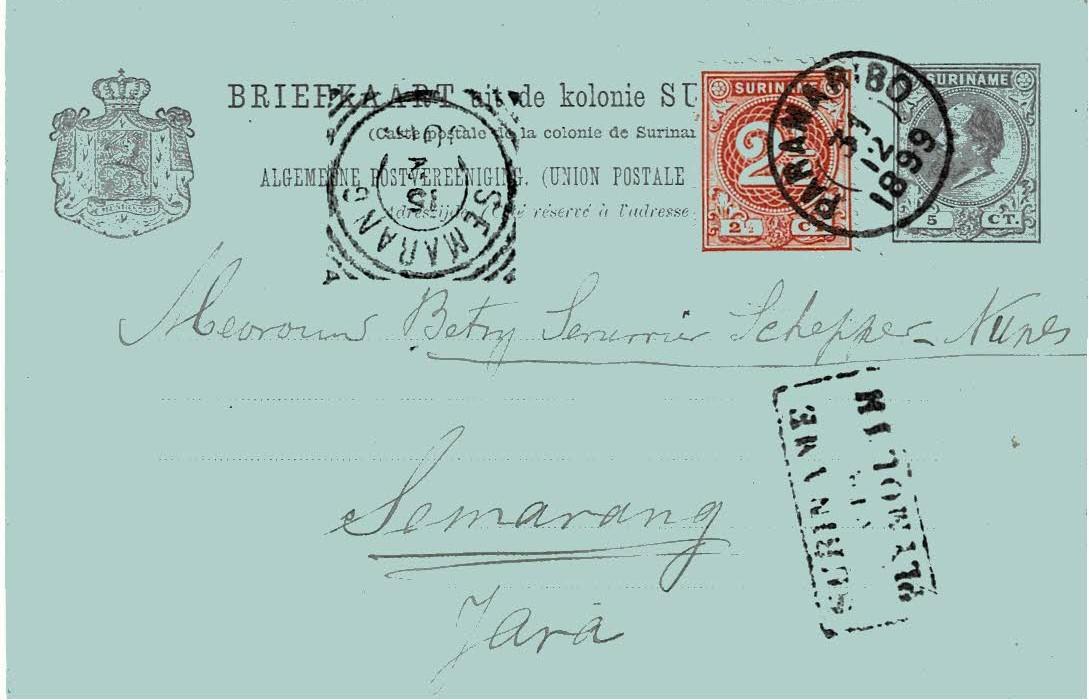 BRIEFKAART uit de kolonie SU
(Carte postale de la colonie de Surinam
ALGEMEENE POSTVEREENIGING. (UNION POSTALE
réservé à l'adresse
SURINAME
2½ CT.
SURINAME
5 CT.
PARAMARIBO
31
12
1899
SEMARANG
Mevrouw Betsy Serurier Schepper-Nunes
Semarang
Java
SURINAME